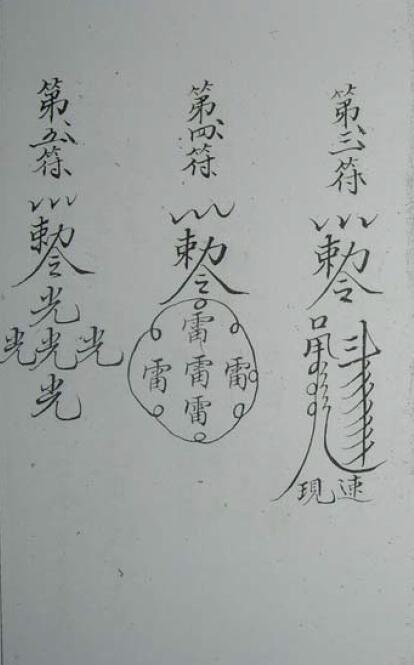 第三符
勅令
速現
第四符
勅令
雷
雷雷雷
雷
第五符
勅令
光
光光光
光